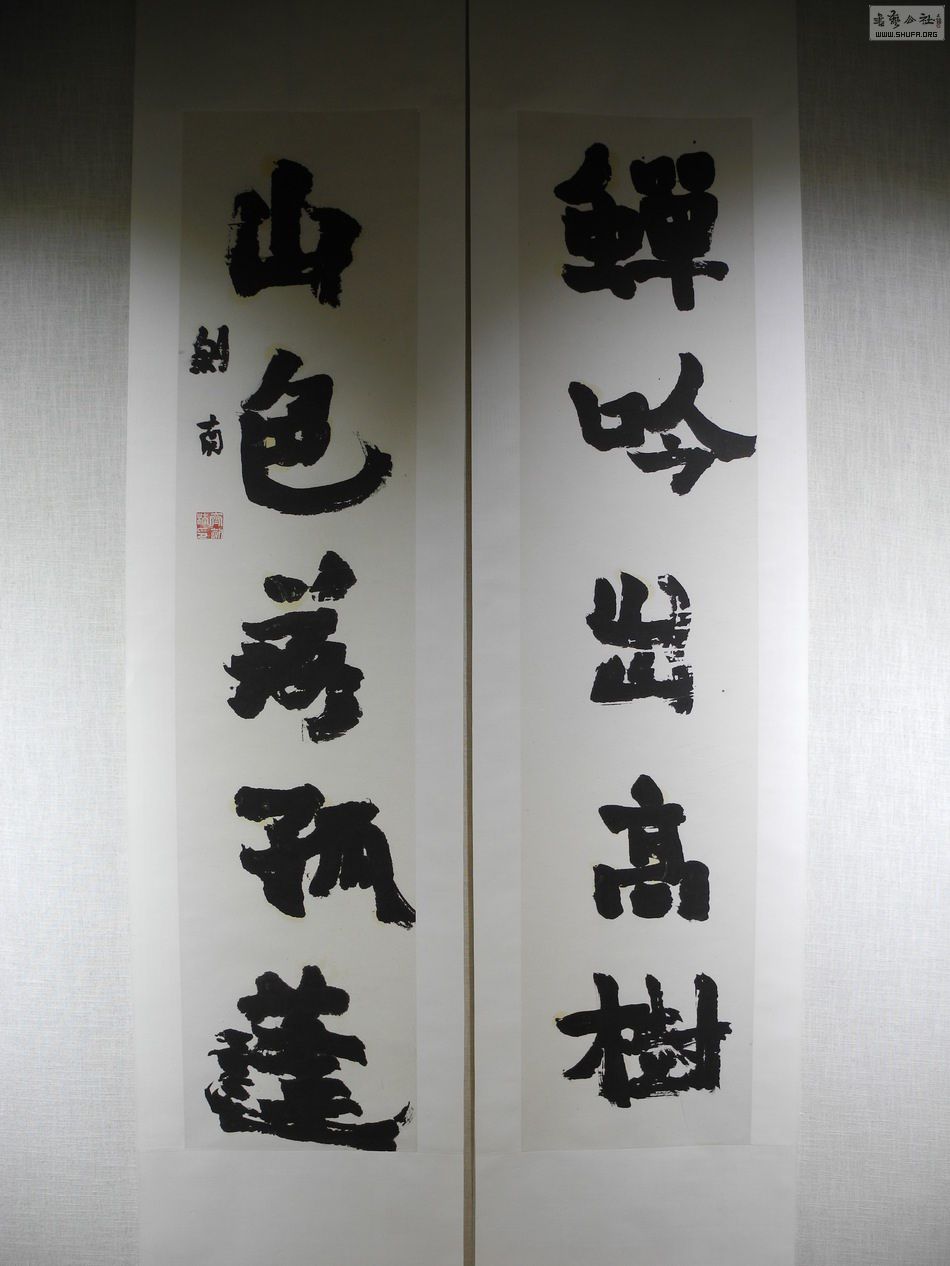 蟬吟出高樹
山色落孤蓬
劍南
書藝公社
WWW.SHUFA.ORG